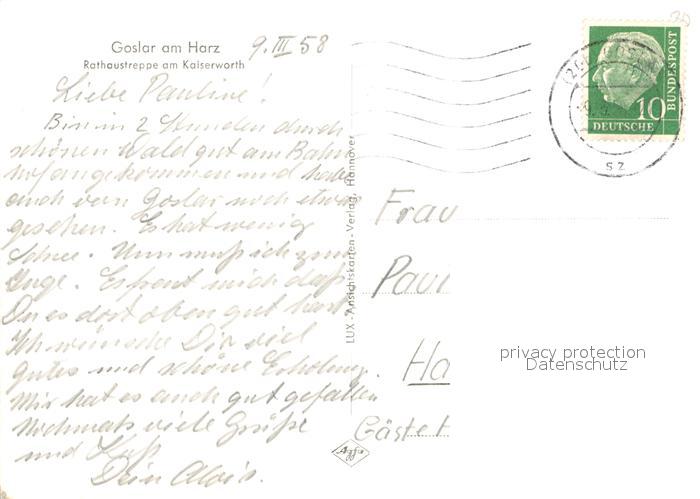 Goslar am Harz 9. III 58
Rathaustreppe am Kaiserworth
Liebe Pauline!
Bin in 2 Stunden durch
schönen Wald gut am Bahn
hof angekommen und habe
auch von Goslar noch etwas
gesehen. Es hat wenig
Schnee. Nun muß ich zum
Zuge. Es freut mich daß
Du es dort oben gut hast
Ich wünsche Dir viel
gutes und schöne Erholung.
Mir hat es auch gut gefallen
Nochmals viele Grüße
und Kuß
Dein Alois.
LUX-Ansichtskarten-Verlag, Hannover
Agfa
DEUTSCHE BUNDESPOST
10
sz
Frau
Paul
Ha
Gästeh
privacy protection
Datenschutz